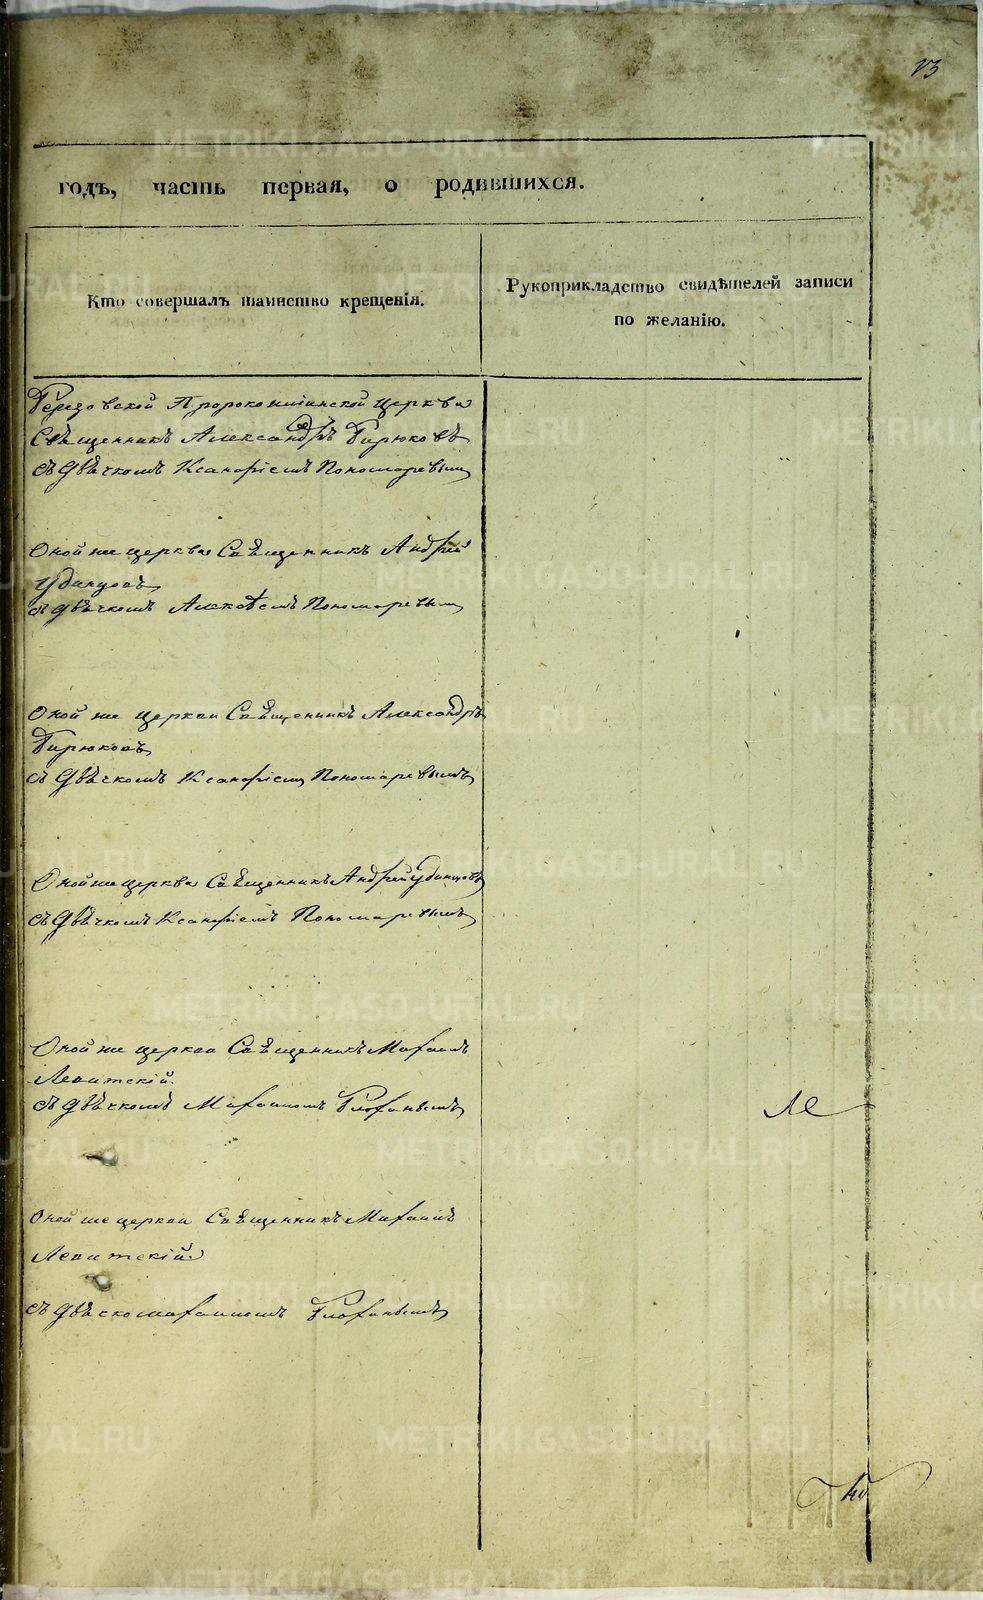 годъ, часть первая, о родившихся.
Кто совершалъ таинство крещенія.
Рукоприкладство свидѣтелей записи
по желанію.
Березовской Пророкоильинской Церкви
Священникъ Александръ Бирюковъ
съ Дьячкомъ Ксанфіемъ Пономаревым
Оной же церкви Священникъ Андрей
Удинцовъ
съ Дьячкомъ Алексѣемъ Пономаревым
Оной же церкви Священникъ Александръ
Бирюковъ
съ Дьячкомъ Ксанфіем Пономаревымъ
Оной же церкви Священникъ Андрей Удинцовъ
съ Дьячкомъ Ксанфіемъ Пономаревымъ
Оной же церкви Священникъ Михаилъ
Левитскій
съ Дьячкомъ Михаиломъ
Оной же церкви Священникъ Михаилъ
Левитскій
METRIKI.GASO-URAL.RU